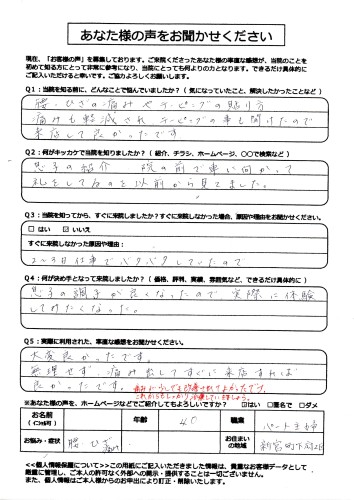 あなた様の声をお聞かせください
現在、「お客様の声」を募集しております。ご来院くださったあなた様の率直な感想が、当院のことを
初めて知る方にとって非常に参考になり、当院にとっても何よりの力となります。できるだけ具体的に
ご記入いただけると幸いです。ご協力よろしくお願いします。
Q1:当院を知る前に、どんなことで悩んでいましたか？（気になっていたこと、解決したかったことなど）
腰、ひざの痛みやテーピングの貼り方
痛みも軽減されテーピングの事も聞けたので
来店して良かったです
Q2:何がキッカケで当院を知りましたか？（紹介、チラシ、ホームページ、〇〇で検索など）
息子の紹介 院の前で車に向かって
礼をしてるのを以前から見てました。
Q3:当院を知ってから、すぐに来院しましたか？すぐに来院しなかった場合、原因や理由をお聞かせください。
□はい ☑いいえ
すぐに来院しなかった原因や理由：
2〜3日仕事でバタバタしていたので
Q4:何が決め手となって来院しましたか？（価格、評判、実績、雰囲気など、できるだけ具体的に）
息子の調子が良くなったので実際に体験
してみたくなった。
Q5:実際に利用された、率直な感想をお聞かせください。
大変良かったです。
無理せず、痛み出してすぐに来店すれば
良かったです。
※あなた様の声を、ホームページなどでご紹介してもよろしいですか？ ☑はい □匿名で □ダメ
お名前
（イニシャル可）
年齢
40
職業
パート主婦
お悩み・症状
腰 ひざ
お住まい
の地域
新宮町下府
<<個人情報保護について>>この用紙にご記入いただきました情報は、貴重なお客様データとして
厳重に管理し、ご本人の許可なく外部への開示・提供することは一切ございません。
個人情報はご本人様からのお申出により訂正・削除いたします。